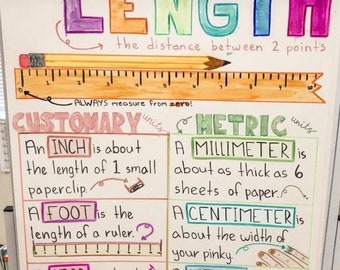 LENGTH
the distance between 2 points
0 1 2 3 4 5 6 7 8 9
ALWAYS measure from zero!
CUSTOMARY units
An INCH is about
the length of 1 small
paperclip.
A FOOT is the
length of a ruler.
METRIC units
A MILLIMETER is
about as thick as 6
sheets of paper.
A CENTIMETER is
about the width of
your pinky.